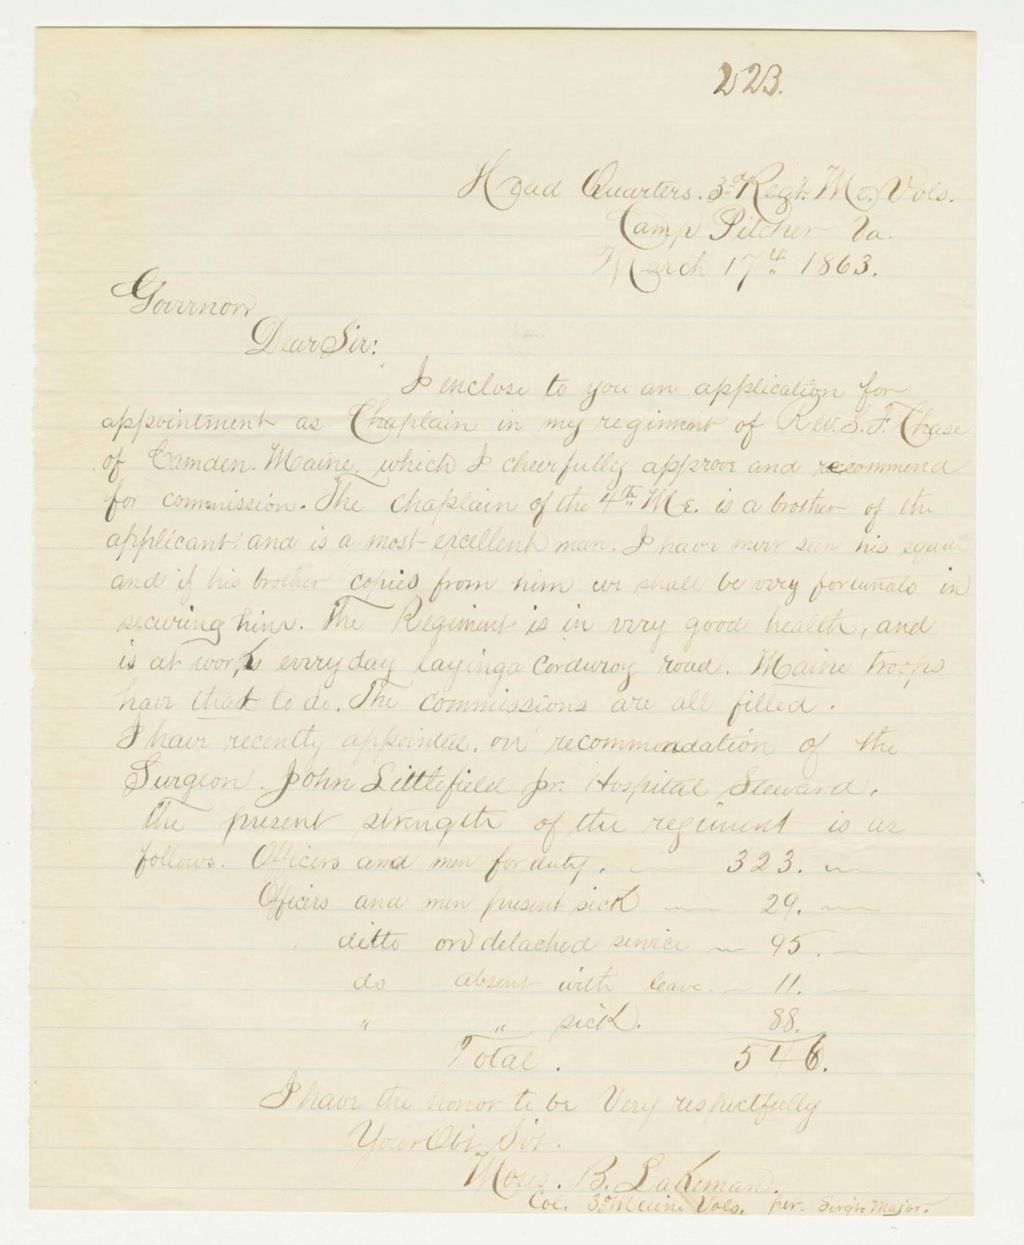 223.
Head Quarters. 3d Regt. Me. Vols.
Camp Pitcher Va.
March 17th 1863.
Governor
Dear Sir:
I enclose to you an application for
appointment as Chaplain in my regiment of Rev. S. F. Chase
of Camden. Maine, which I cheerfully approve and recommend
for commission. The Chaplain of the 4th Me. is a brother of the
applicant and is a most excellent man. I have never seen his equal
and if his brother copies from him we shall be very fortunate in
securing him. The Regiment is in very good health, and
is at work every day laying a Corduroy road. Maine troops
have that to do. The commissions are all filled.
I have recently appointed, on recommendation of the
Surgeon. John Littlefield Jr. Hospital Steward.
The present strength of the regiment is as
follows. Officers and men for duty. 323.
Officers and men present sick 29.
ditto on detached service 95.
do absent with leave. 11.
" " sick. 88.
Total. 546.
I have the honor to be Very respectfully
Your Obt Svt.
Moses. B. Lakeman.
Col. 3d Maine Vols. per. Serg't Major.